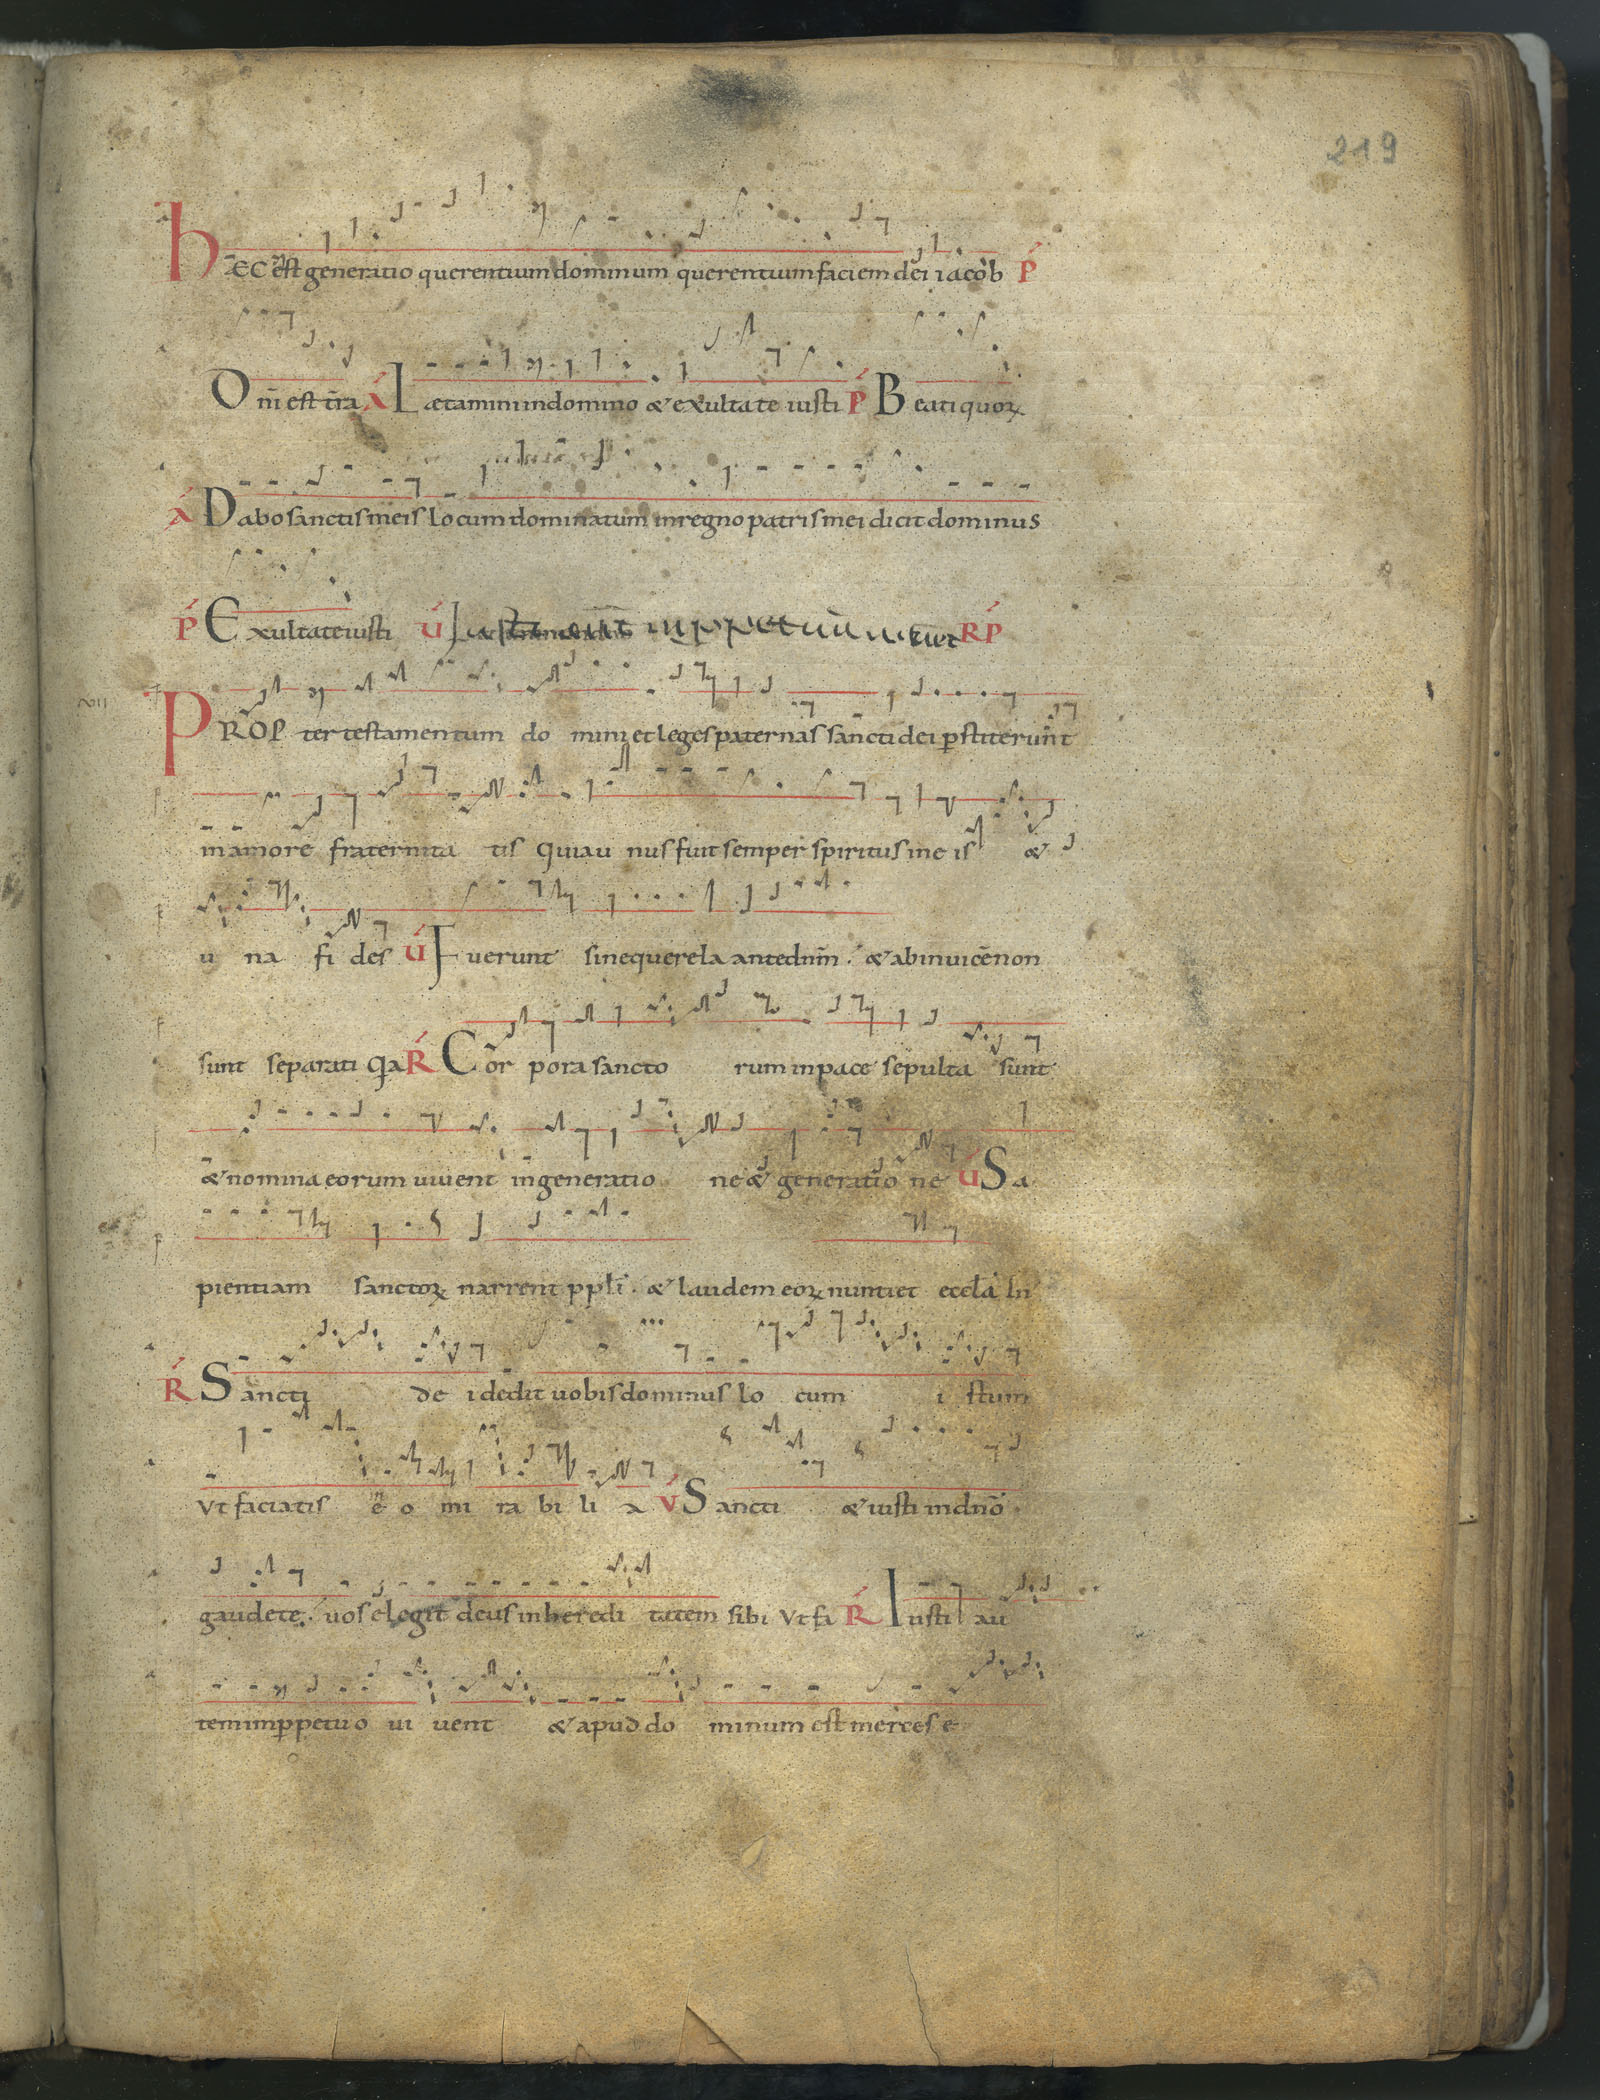 219
hÆC est generatio querentium dominum querentium faciem dei iacob P
Om̄ est t̄ra A Lætamini in domino & exultate iusti P Beati quoꝝ
A Dabo sanctis meis locum dominatum in regno patris mei dicit dominus
P Exultate iusti V Iusti aut̄ in ppetuū RP
VII
PROPter testamentum domini et leges paternas sancti dei ꝑstiterunt
in amore fraternitatis Quia unus fuit semper spiritus in eis &
una fides V Fuerunt sine querela ante dnm̄. & ab inuicē non
sunt separati Q̇a R Corpora sancto rum in pace sepulta sunt
& nomina eorum uiuent in generatio ne & generatio ne V Sa
pientiam sanctoꝝ narrent ppl̄i. & laudem eoꝝ nuntiet eccl̄a In
R Sancti dei dedit uobis dominus locum istum
Vt faciatis eo mirabilia V Sancti & iusti in dn̄o
gaudete. uos elegit deus in heredi tatem sibi Vt fa R Iusti au
tem in ꝑpetuo ui uent & apud do minum est merces e